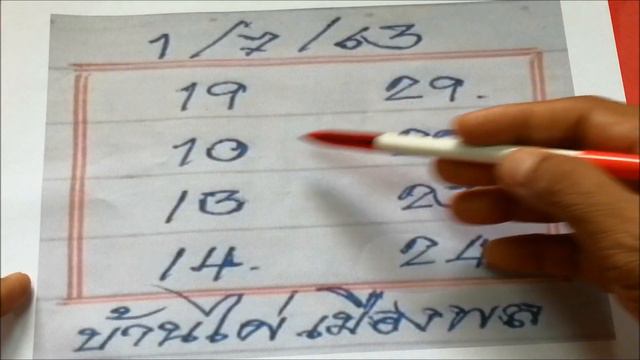 1/7/63
19 29.
10
13 2
14. 24
บ้านไผ่ เมืองพล